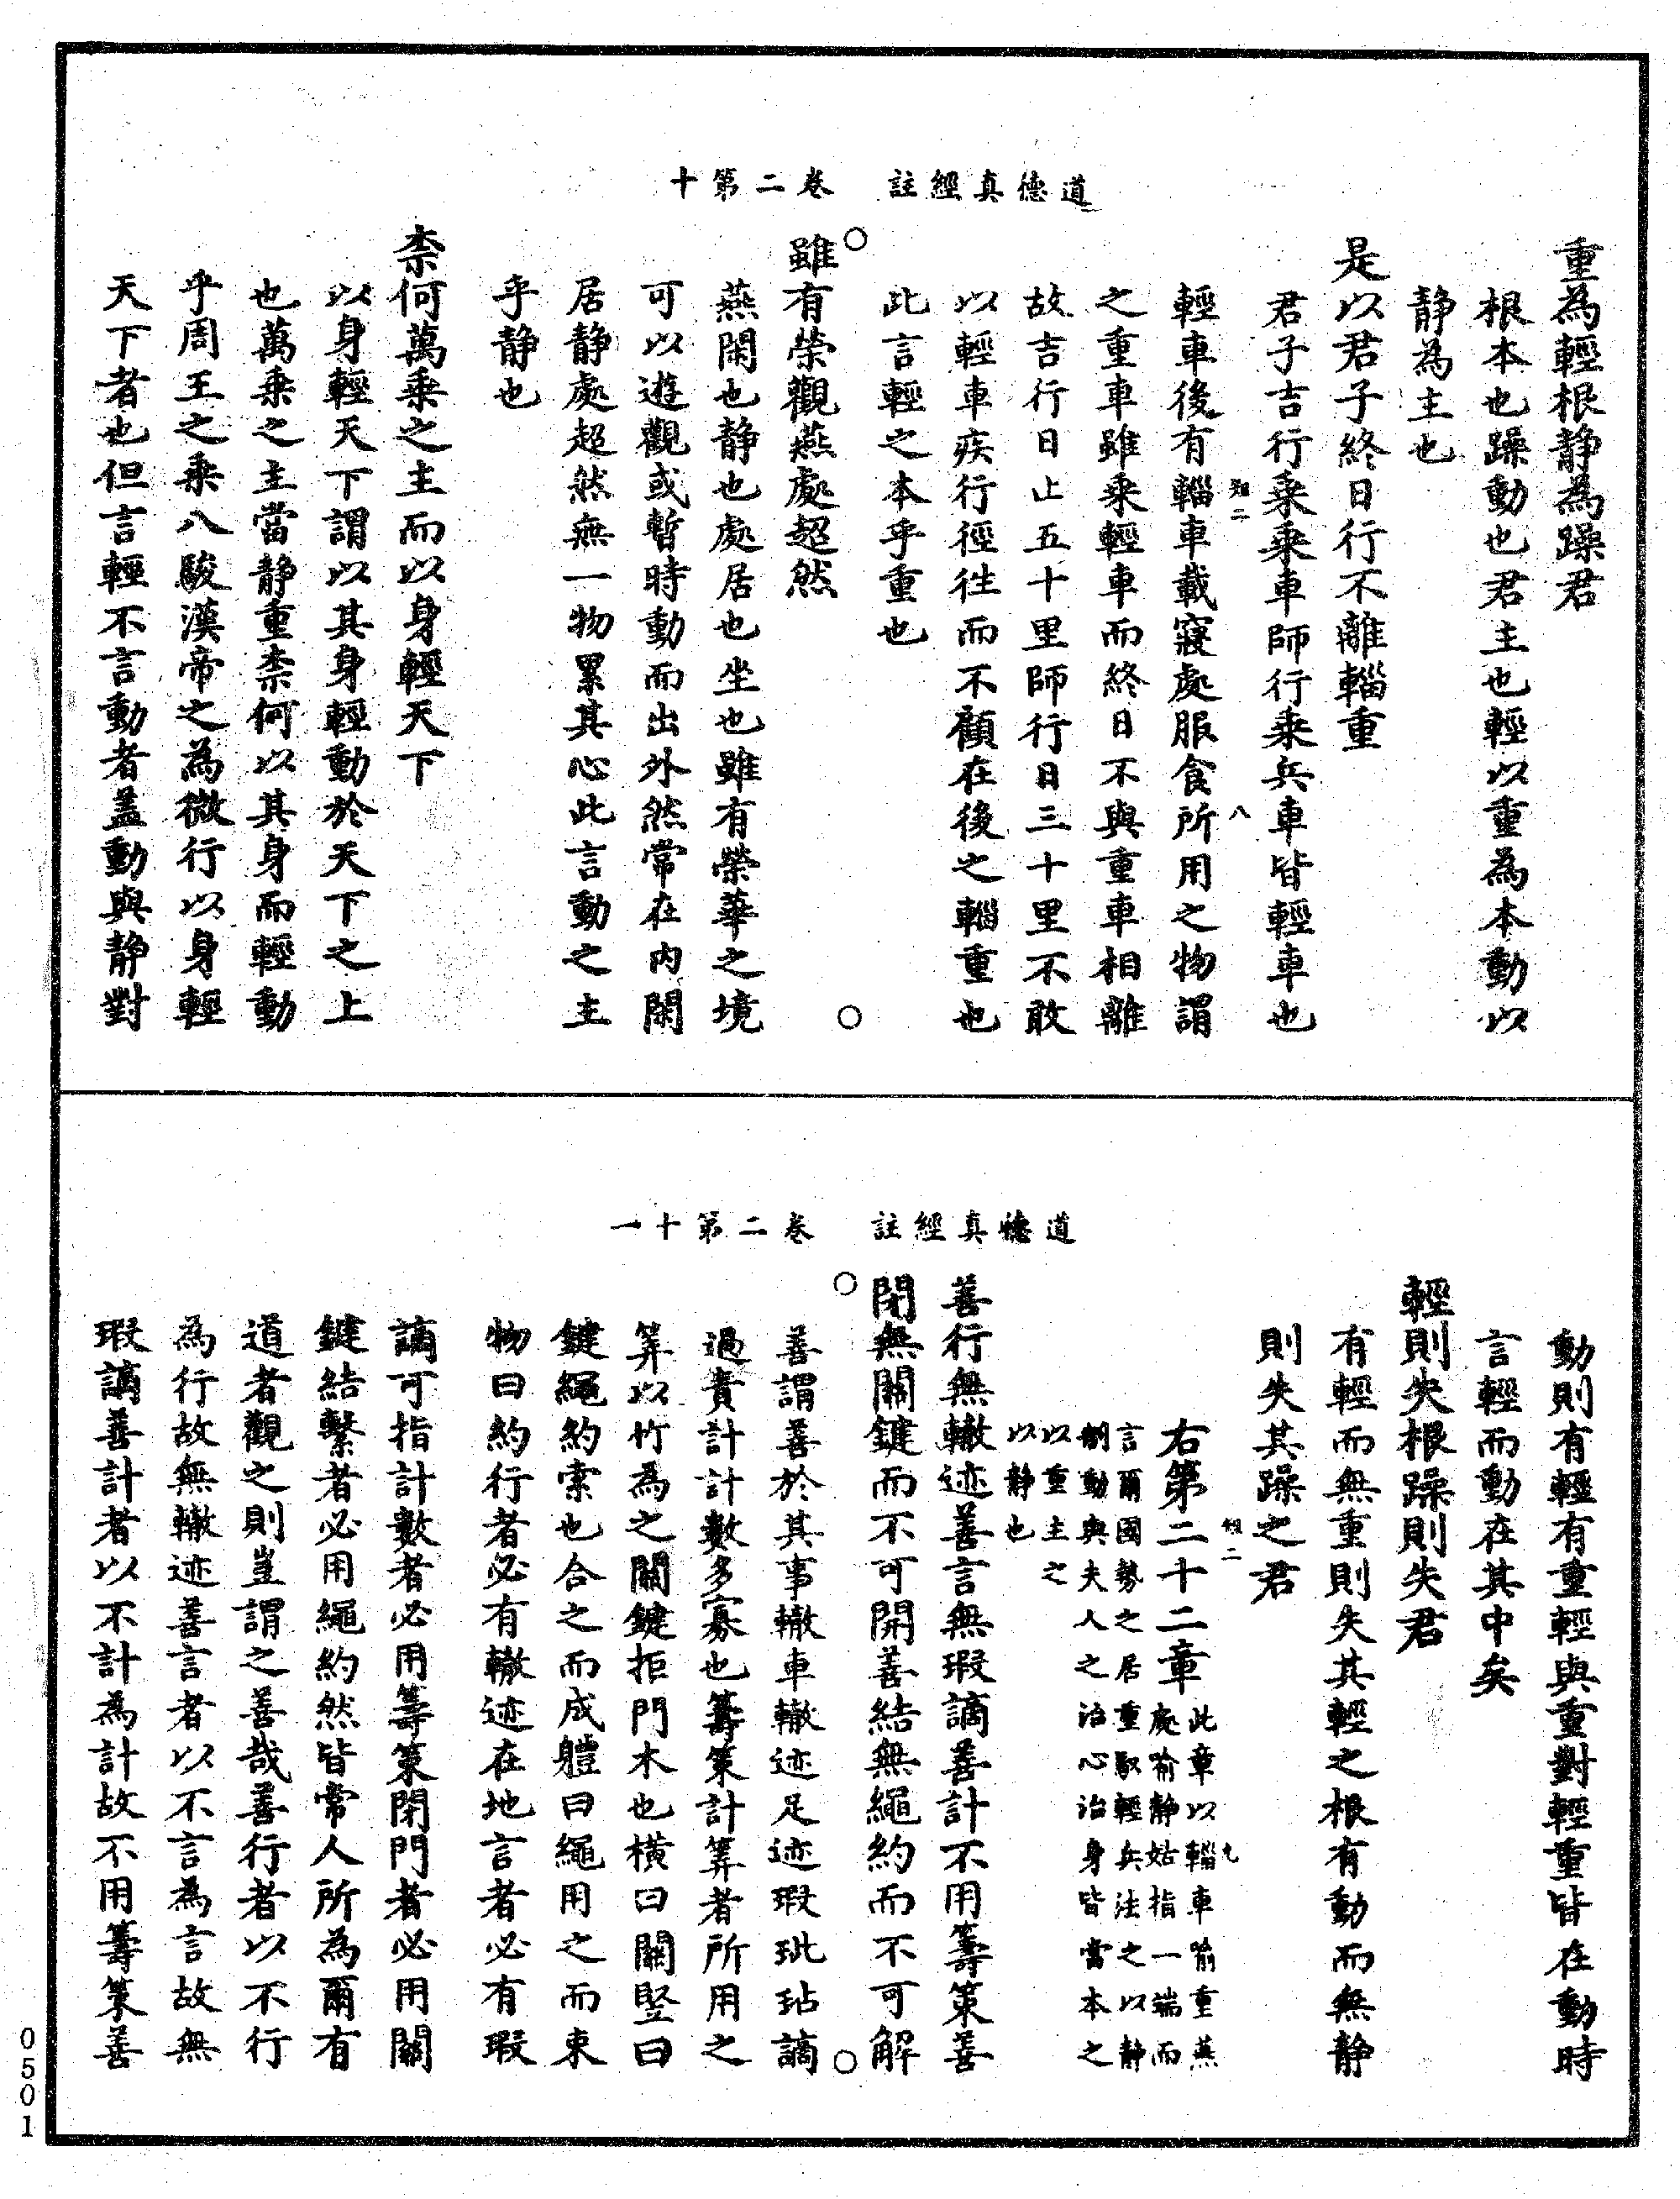 道德真經註　卷二第十
重為輕根静為躁君
根本也躁動也君主也輕以重為本動以
静為主也
是以君子終日行不離輜重
君子吉行乘乘車師行乘兵車皆輕車也
二
八
輕車後有輜車載寢處服食所用之物謂
之重車雖乘輕車而終日不與重車相離
故吉行日止五十里師行日三十里不敢
以輕車疾行徑往而不顧在後之輜重也
此言輕之本乎重也
雖有榮觀燕處超然
燕閑也静也處居也坐也雖有榮華之境
可以遊觀或暫時動而出外然常在內閑
居静處超然無一物累其心此言動之主
乎静也
柰何萬乘之主而以身輕天下
以身輕天下謂以其身輕動於天下之上
也萬乘之主當静重柰何以其身而輕動
乎周王之乘八駿漢帝之為微行以身輕
天下者也但言輕不言動者盖動與静對
道德真經註　卷二第十一
動則有輕有重輕與重對輕重皆在動時
言輕而動在其中矣
輕則失根躁則失君
有輕而無重則失其輕之根有動而無静
則失其躁之君
二
九
右第二十二章
此章以輜車喻重燕
處喻静姑指一端而
言爾國勢之居重馭輕兵法之以静
制動與夫人之治心治身皆當本之
以重主之
以静也
善行無轍迹善言無瑕謫善計不用籌策善
閉無關鍵而不可開善結無繩約而不可解
善謂善於其事轍車轍迹足迹瑕玼玷謫
過責計計數多寡也籌策計筭者所用之
筭以竹為之關鍵拒門木也橫曰關竪曰
鍵繩約索也合之而成體曰繩用之而束
物曰約行者必有轍迹在地言者必有瑕
謫可指計數者必用籌策閉門者必用關
鍵結繫者必用繩約然皆常人所為爾有
道者觀之則豈謂之善哉善行者以不行
為行故無轍迹善言者以不言為言故無
瑕謫善計者以不計為計故不用籌策善
0501